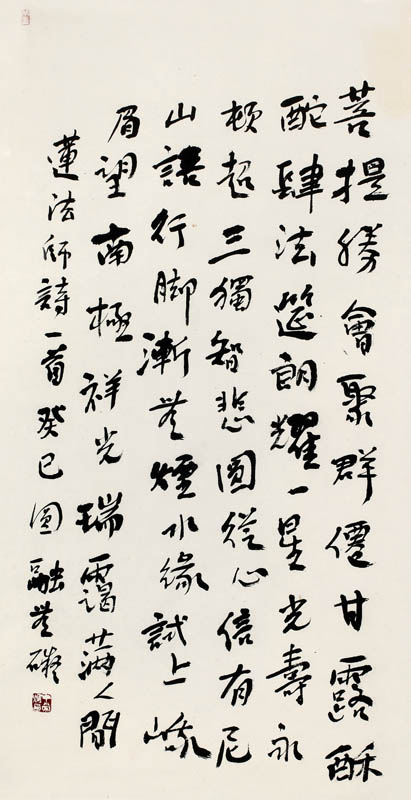 菩提勝會聚群僊甘露酥
酡肆法筵朗耀一星光壽永
頓超三獨智悲圓從心信有尼
山語行脚漸無煙水緣試上峨
眉望南極祥光瑞靄滿人間
蓮法師詩一首癸巳圓融無礙